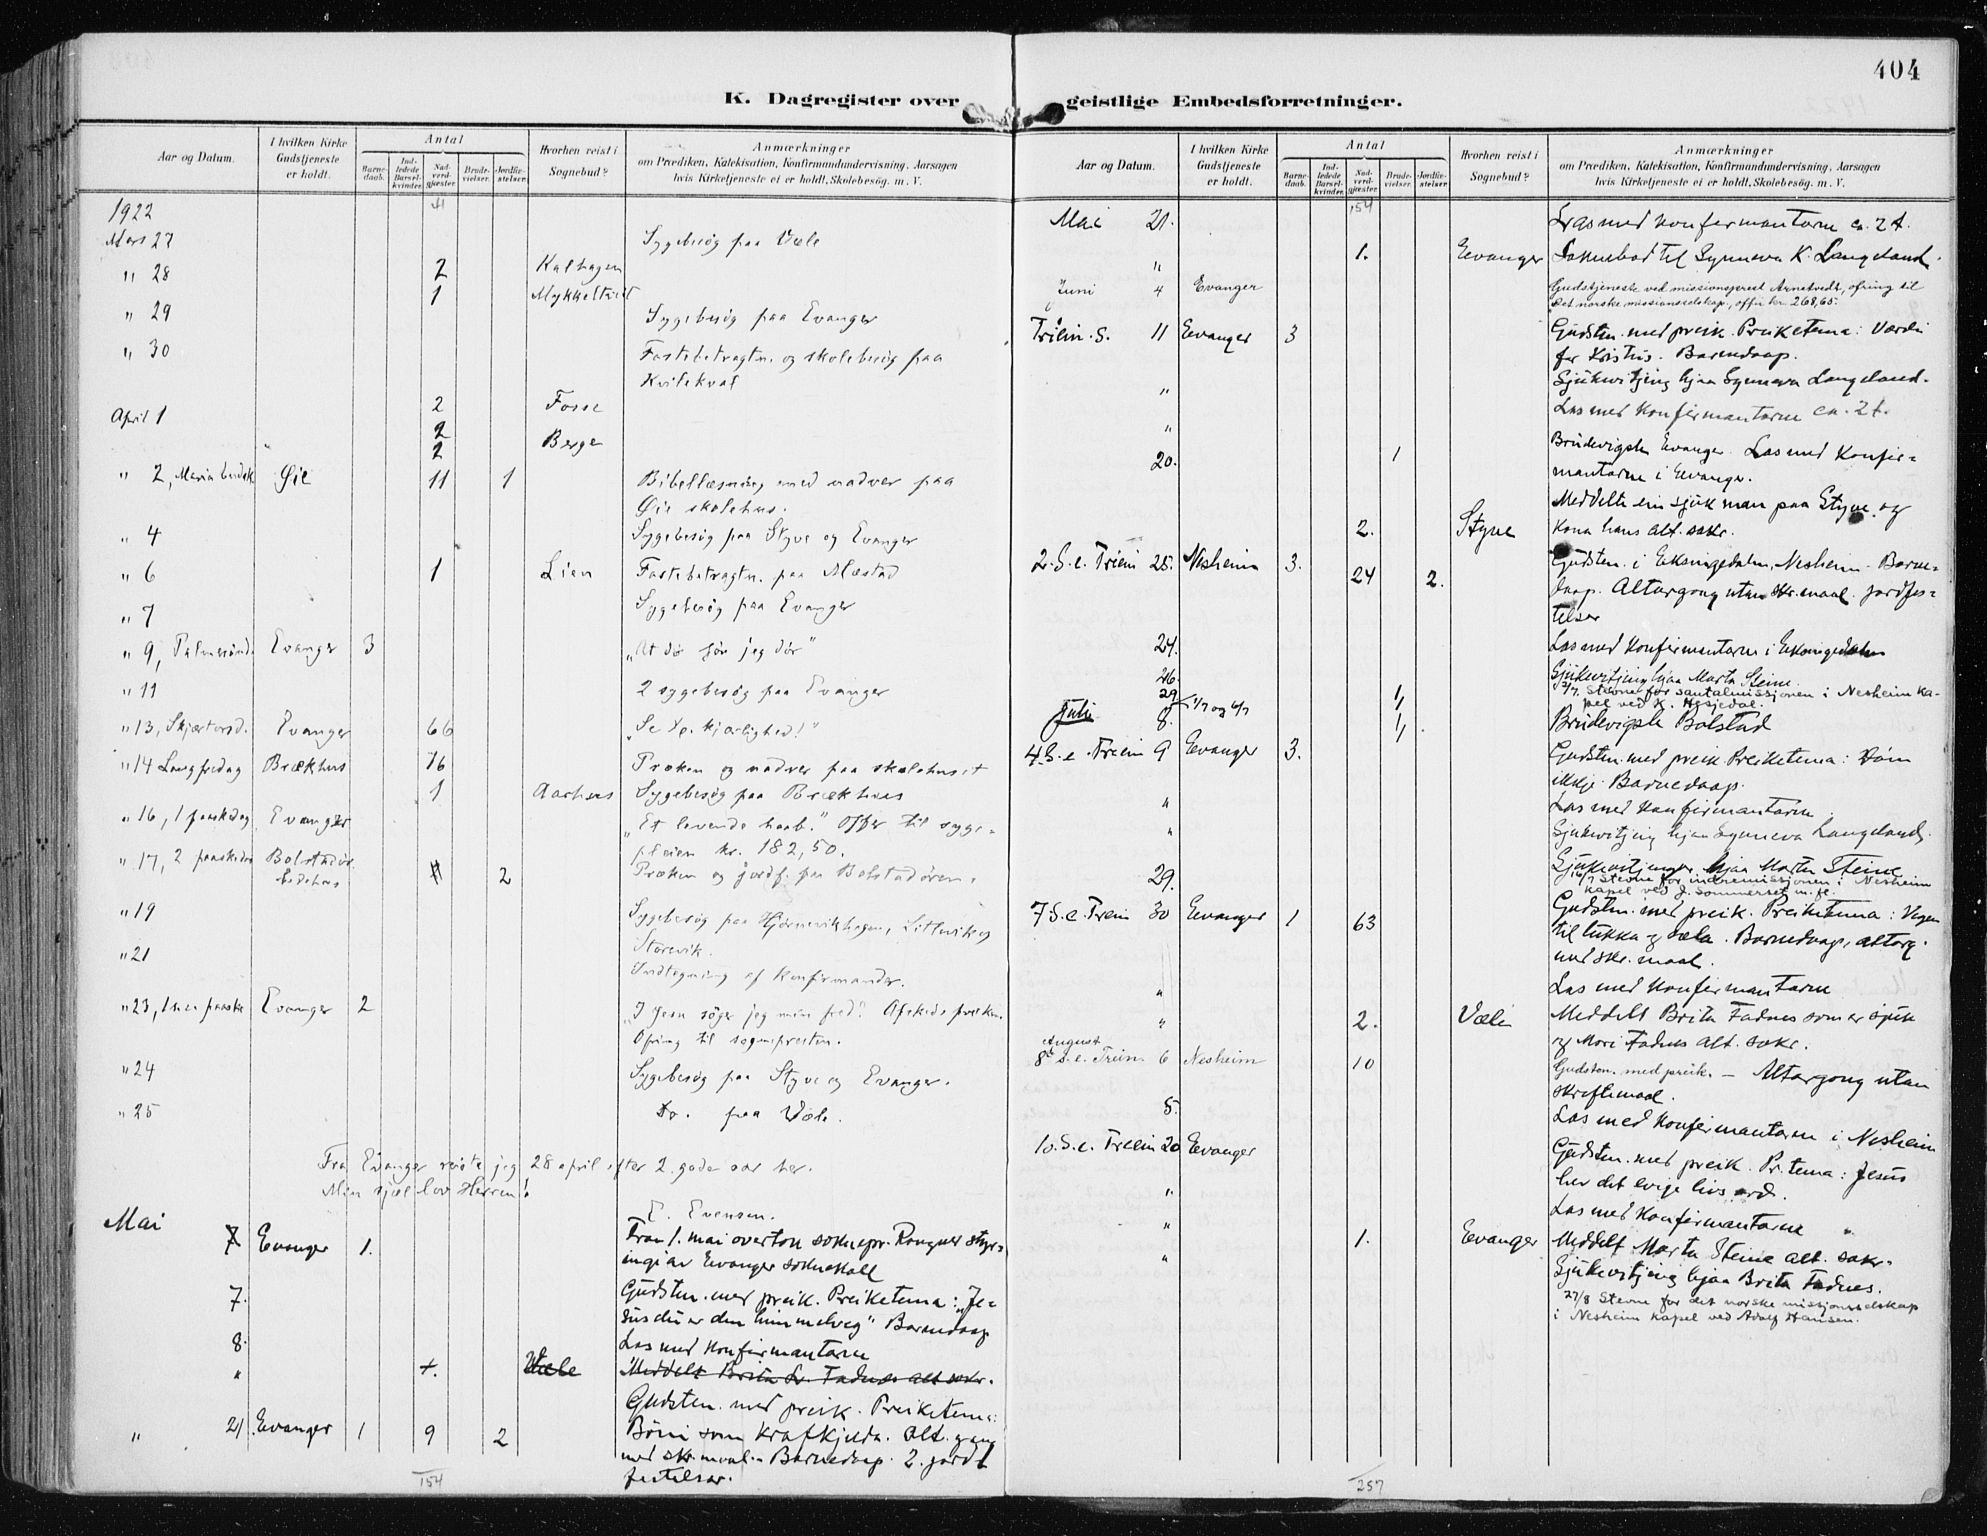 404
K. Dagregister over geistlige Embedsforretninger.
Aar og Datum.
I hvilken Kirke Gudstjeneste er holdt.
Antal
Barnedaab.
Indledede Barselkvinder.
Nadverdgjæster.
Brudevielser.
Jordfæstelser.
Hvorhen reist i Sognebud?
Anmærkninger
om Prædiken, Katekisation, Konfirmandundervisning, Aarsagen
hvis Kirketjeneste ei er holdt, Skolebesøg. m. V.
1922
Mars 27 Sygebesøg paa Væle
" 28 2 Kalhagen
1 Mykkeltvedt
" 29 Sygebesøg paa Evanger
" 30 Fastebetragtn. og skolebesøg paa
Kvilekval
2 Fosse
April 1 2
2 Berge
" 2, Maria budsk Øie 11 1 Bibellæsning med nadver paa
Øie skolehus.
" 4 Sygebesøg paa Styve og Evanger
" 6 1 Lien Fastebetragtn. paa Mæstad
" 7 Sygebesøg paa Evanger
" 9, Palmesønd. Evanger 3 „At dø før jeg dør"
" 11 2 sygebesøg paa Evanger
" 13, Skjærtorsd. Evanger 66 „Se Hp. kjærlighed!"
" 14 Langfredag Brækhus 16 Præken og nadver paa skolehuset
1 Aarhus Sygebesøg paa Brækhus
" 16, 1 paaskdag Evanger „Et levende haab." Offer til syge-
pleien kr. 182,50.
" 17, 2 paaskedag Bolstadør. bedehus 2 Præken og jordf. paa Bolstadøren.
" 19 Sygebesøg paa Hjørnevikhagen, Litlevik og
Storevik.
" 21 Indtegning af konfirmander.
" 23, 1 s. e. paaske Evanger 2 „I Jesu søger jeg min fred! Afskedspræken.
Ofring til sognepresten.
" 24 Sygebesøg paa Styve og Evanger.
" 25 Do. paa Væle.
Fra Evanger reiste jeg 28 april efter 2 gode aar her.
Min sjæl lov Herren!
E. Evensen.
Mai
7 Evanger 1. Fraa 1. mai overtok soknepr. Rongner styr-
ingi av Evanger soknekall
7. Gudsten. med preik. Preiketema: „Je-
sus du er den himmelveg" Barnedaap
8. Las med konfirmantarne
" Væle Meddelt Brita Fadnes alt sakr.
Gudsten. med preik. Preiketema:
" 21 Evanger 1 9 2 Bøni som krafkjelda. Alt.gang
med skr.maal. – Barnedaap. 2. jord-
festelsar.
154
Aar og Datum.
I hvilken Kirke Gudstjeneste er holdt.
Antal
Barnedaab.
Indledede Barselkvinder.
Nadverdgjæster.
Brudevielser.
Jordfæstelser.
Hvorhen reist i Sognebud?
Anmærkninger
om Prædiken, Katekisation, Konfirmandundervisning, Aarsagen
hvis Kirketjeneste ei er holdt, Skolebesøg. m. V.
154
Mai 21. Las med konfirmantarne ca. 2 t.
" 1. Evanger Soknebod til Synneva K. Langeland.
Juni 4 Evanger Gudstjeneste ved missionsprest Arnetvedt, ofring til
det norske missionsselskap, offer kr. 268,65.
Treiein. S. 11 Evanger 3 Gudsten. med preik. Preiketema: Værdi
for Kristus. Barnedaap.
" Sjukevitjing hjaa Synneva Langeland.
" Las med konfirmantarne ca. 2 t.
20. 1 Brudevigsle Evanger. Las med konfir-
mantarne i Evanger.
Meddelte ein sjuk man paa Styve og
2. Styve kona hans alt. sakr.
2. S. e. Treiein 25. Nesheim 3. 24 2. Gudsten. i Eksingedalen, Nesheim. Barne-
daap. Altargong utan skr.maal. Jordfes-
telser
24. Las med konfirmantarne i Eksingedalen
26. Sjukevitjing hjaa Marta Steine.
29 1/7 og 6/7 1, 2/7. Stevne for santalmissjonen i Nesheim ka-
pel ved K. Hesjedal.
Juli 8. 1, Brudevigsle Bolstad
1,
4. S. e. Treiein 9 Evanger 3. Gudsten. med preik. Preiketema: Døm
ikkje. Barnedaap.
" Las med konfirmantarne
" Sjukevitjing hjaa Synneva Langeland.
29. Sjukevitjingar hjaa Marta Steine
Stevne for indremissjonen i Nesheim
kapel ved J. Sommerset m. fl.
7 S. e. Treiein 30 Evanger 1 63 Gudsten. med preik. Preiketema: Vegen
til lukka og sæla. Barnedaap, altarg.
med skr. maal.
" Las med konfirmantarne
" 2. Væle Meddelt Brita Fadnes som er sjuk
og Mari Fadnes alt. sakr.
August
8. S. e. Treiein 6 Nesheim 10 Gudsten. med preik. – Altargong utan
skriftemaal.
5. Las med konfirmantarne i Nesheim
10. S. e. Treiein 20 Evanger Gudsten. med preik. Pr. tema: Jesus
hev det evige livs ord.
" Las med konfirmantarne "
" 1. Evanger Meddelt Marta Steine alt. sakr.
" Sjukevitjing hjaa Brita Fadnes.
27/8 Stevne for det norske missjonsselskap
i Nesheim kapel ved Adolf Hansen.
257